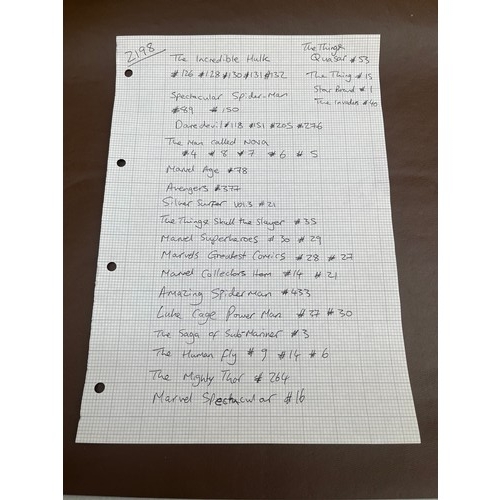 2198
The Incredible Hulk
#126 #128 #130 #131 #132
Spectacular Spider-Man
#89 #150
Daredevil #118 #151 #205 #276
The Man called NOVA
#4 #8 #7 #6 #5
Marvel Age #78
Avengers #377
Silver Surfer vol.3 #21
The Thing & Skull the Slayer #35
Marvel Superheroes #30 #29
Marvels Greatest Comics #28 #27
Marvel Collectors Item #14 #21
Amazing Spiderman #433
Luke Cage Power Man #27 #30
The Saga of Sub-Mariner #3
The Human Fly #9 #14 #6
The Mighty Thor #264
Marvel Spectacular #16
The Thing &
Quasar #53
The Thing #15
Star Brand #1
The Invaders #40